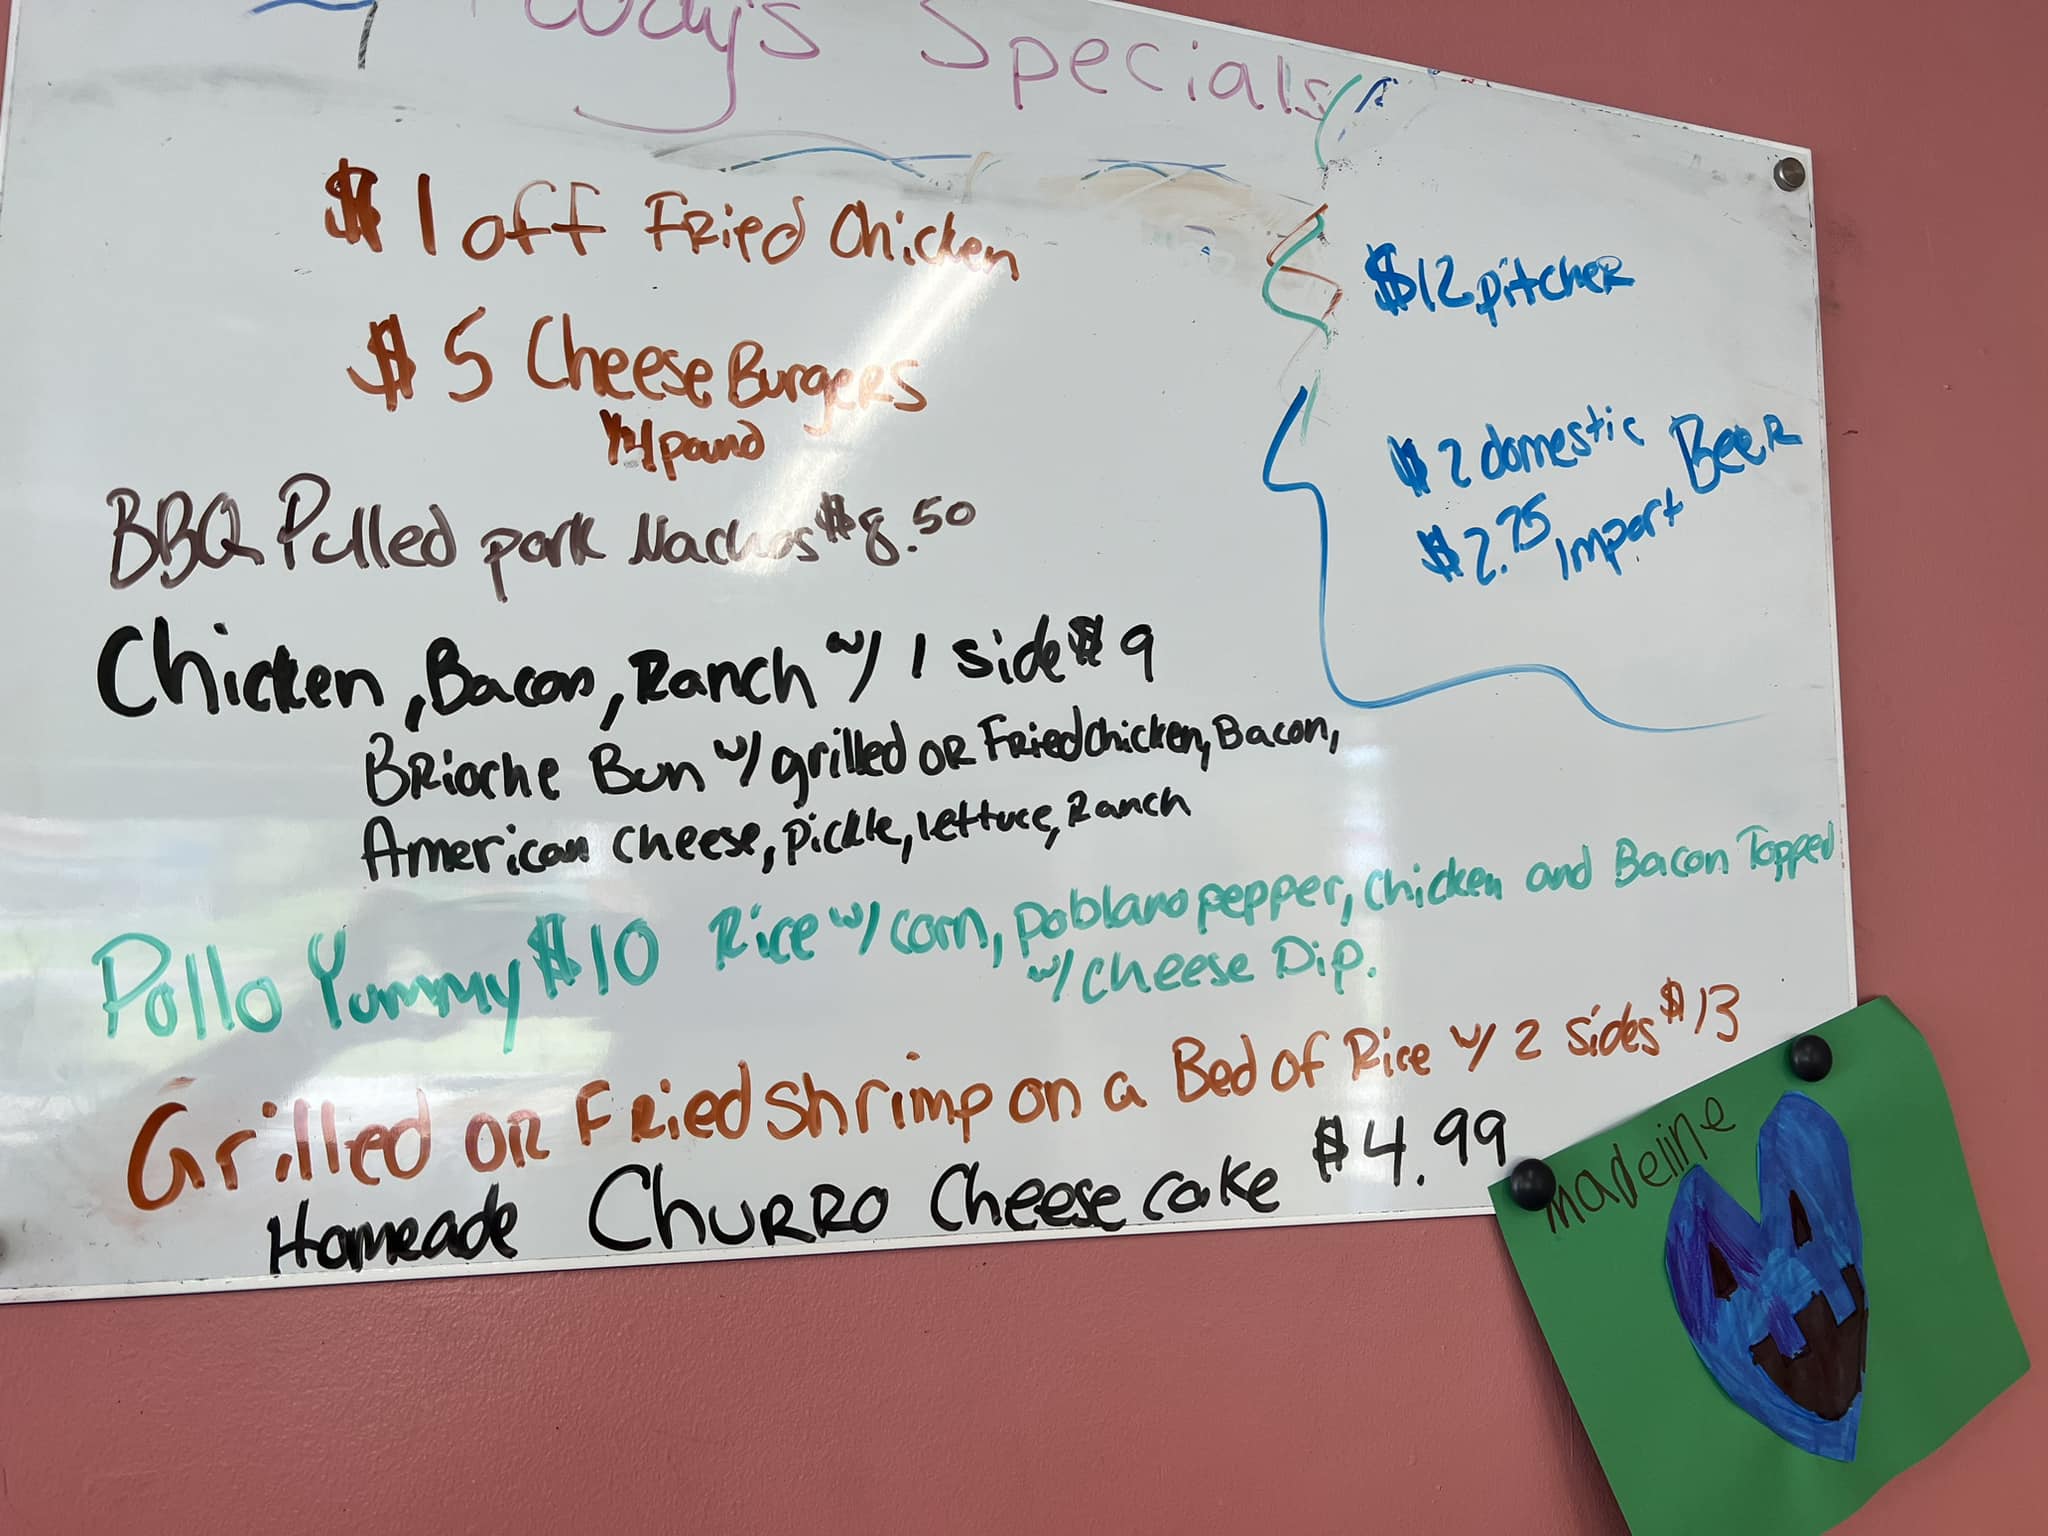 Today's Specials
$1 off Fried Chicken
$5 Cheese Burgers
1/4 pound
BBQ Pulled pork Nachos $8.50
Chicken, Bacon, Ranch w/ 1 side $9
Brioche Bun w/ grilled or Fried chicken, Bacon,
American cheese, pickle, lettuce, Ranch
Pollo Yummy $10 Rice w/ corn, poblano pepper, chicken and Bacon Topped
w/ cheese Dip.
Grilled or Fried shrimp on a Bed of Rice w/ 2 sides $13
Homeade Churro Cheese cake $4.99
$12 pitcher
$2 domestic Beer
$2.75 import
Madeline